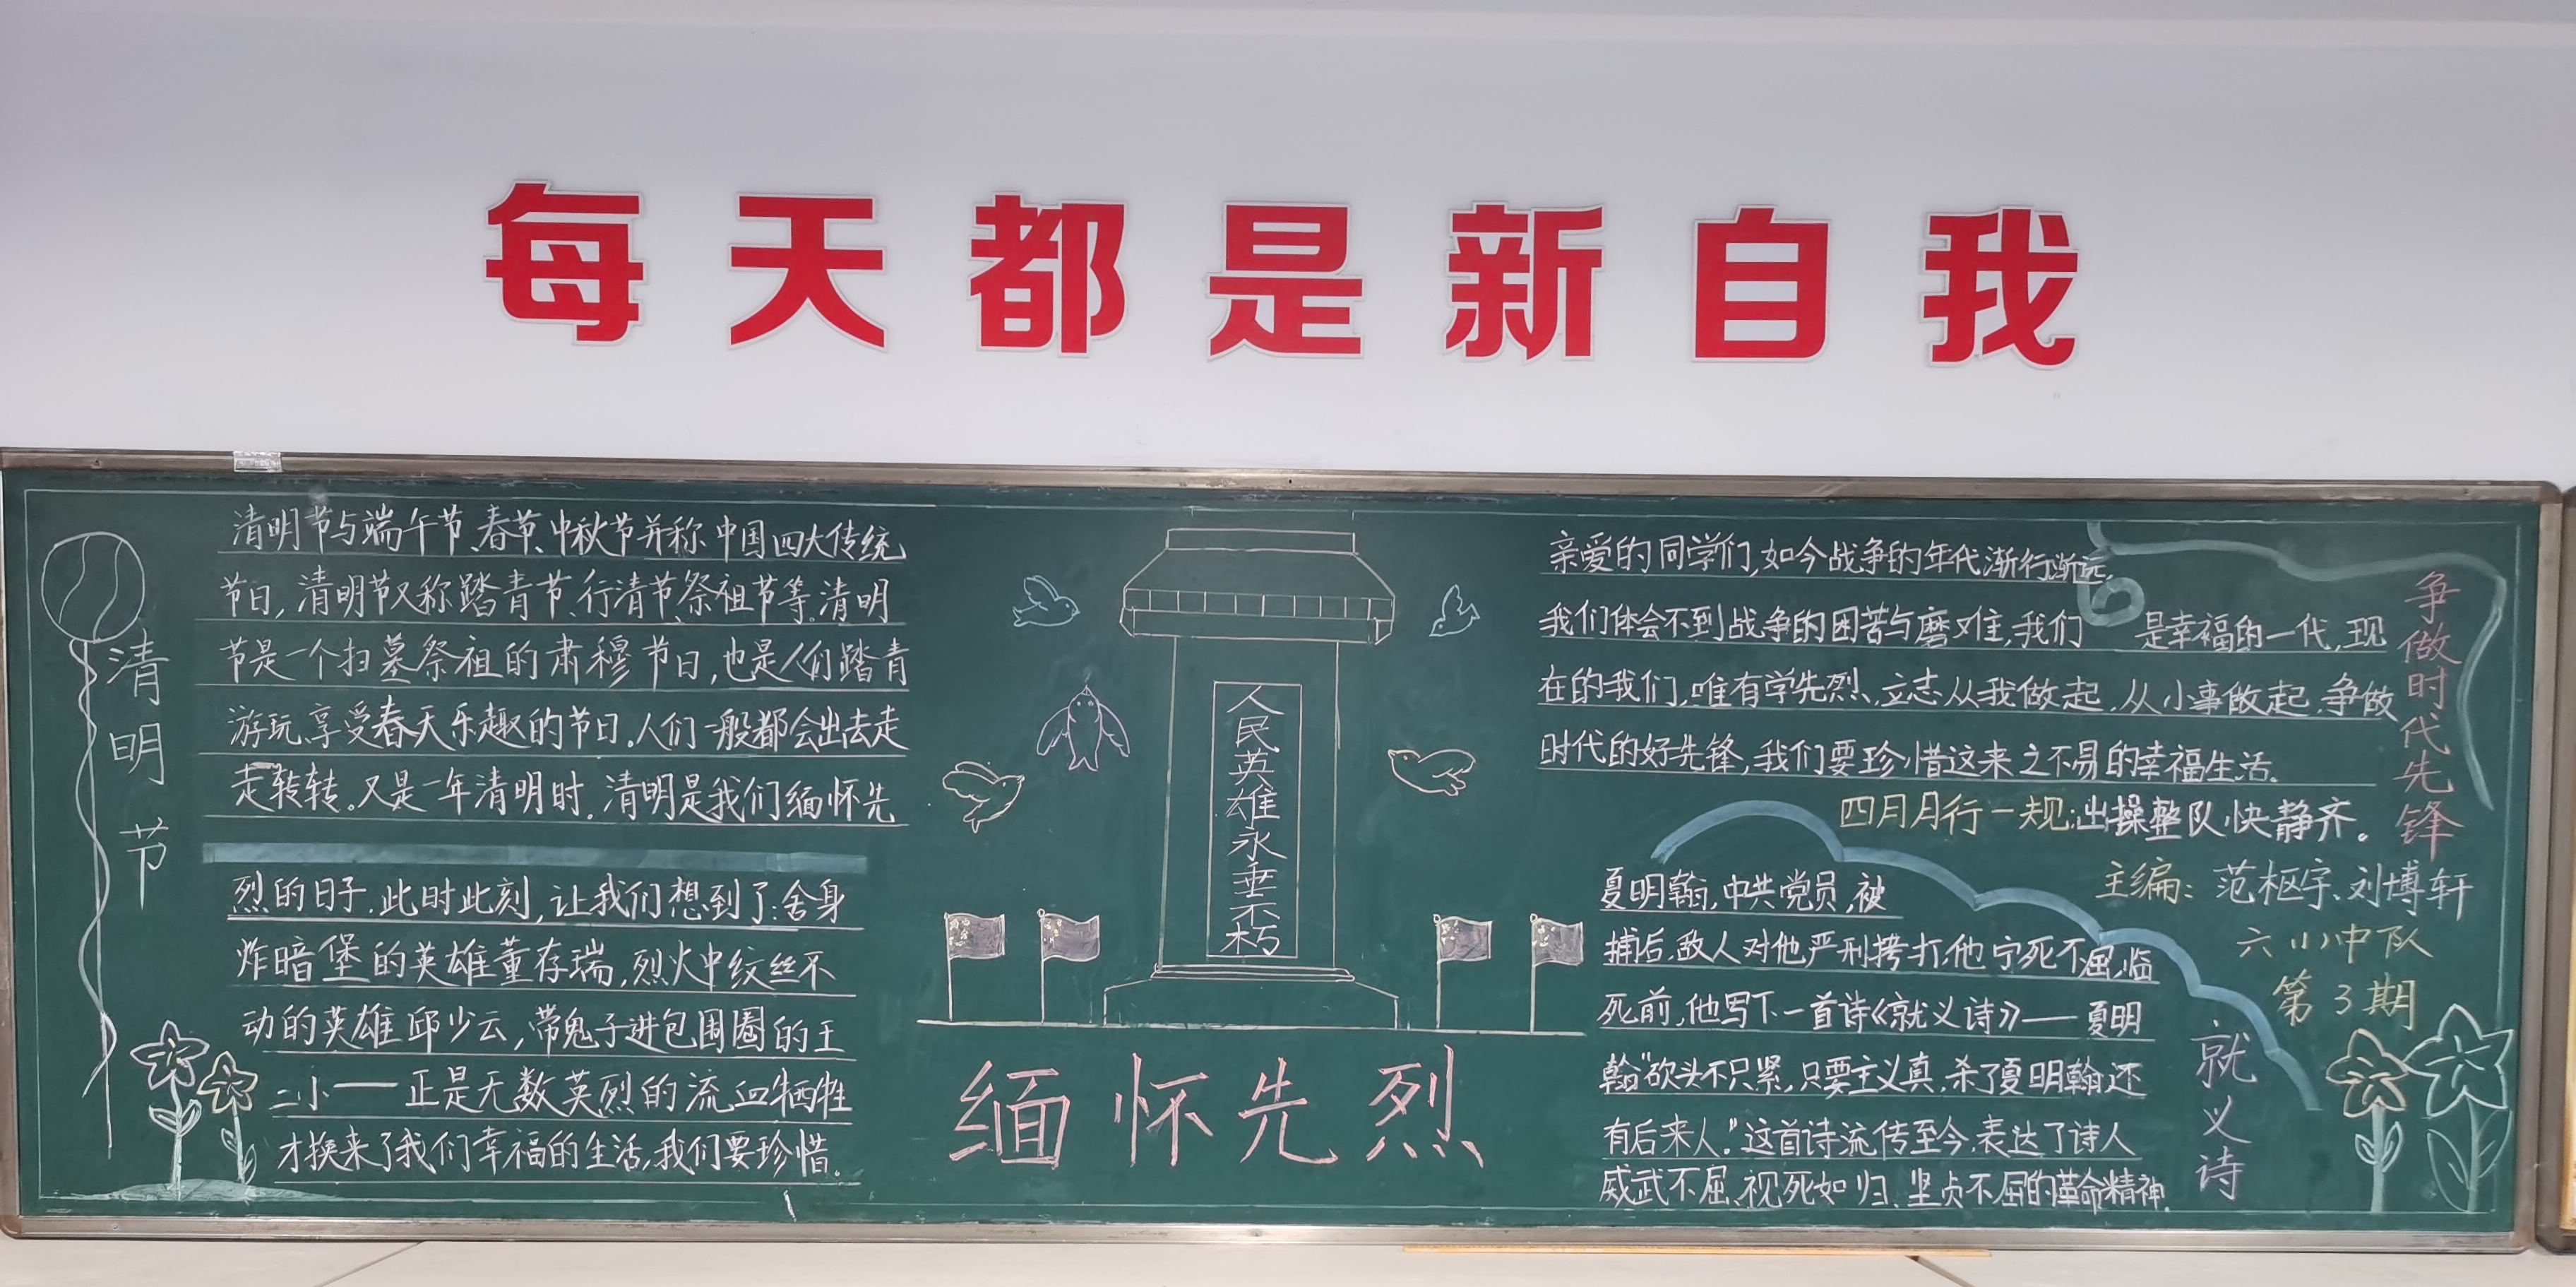 每天都是新自我
清明节
清明节与端午节、春节、中秋节并称中国四大传统
节日,清明节又称踏青节、行清节、祭祖节等。清明
节是一个扫墓祭祖的肃穆节日,也是人们踏青
游玩、享受春天乐趣的节日。人们一般都会出去走
走转转。又是一年清明时,清明是我们缅怀先
烈的日子,此时此刻,让我们想到了:舍身
炸暗堡的英雄董存瑞,烈火中纹丝不
动的英雄邱少云,带鬼子进包围圈的王
二小——正是无数英烈的流血牺牲
才换来了我们幸福的生活,我们要珍惜。
人民英雄永垂不朽
缅怀先烈
亲爱的同学们,如今战争的年代渐行渐远,
我们体会不到战争的困苦与磨难,我们 是幸福的一代,现
在的我们,唯有学先烈、立志从我做起,从小事做起,争做
时代的好先锋,我们要珍惜这来之不易的幸福生活。
争做时代先锋
四月月行一规:出操整队快静齐。
主编:范枢宇、刘博轩
六(1)中队
第3期
夏明翰,中共党员,被
捕后,敌人对他严刑拷打,他宁死不屈,临
死前,他写下一首诗《就义诗》——夏明
翰"砍头不只紧,只要主义真,杀了夏明翰,还
有后来人。"这首诗流传至今,表达了诗人
威武不屈、视死如归、坚贞不屈的革命精神。
就义诗